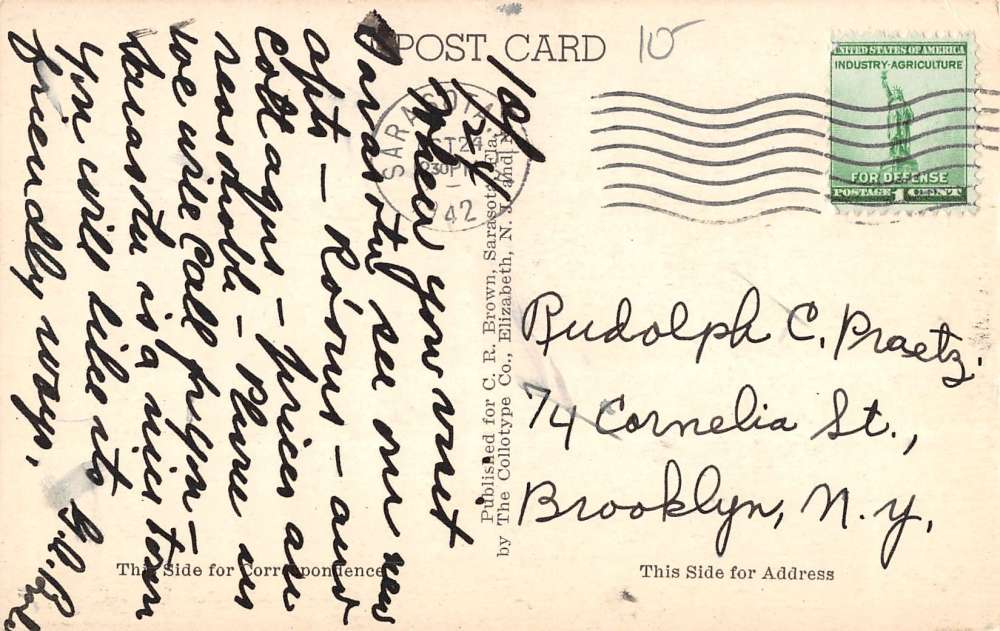 POST CARD
10
SARASOTA
OCT 24
230 PM
1942
UNITED STATES OF AMERICA
INDUSTRY-AGRICULTURE
FOR DEFENSE
POSTAGE 1 CENT
10/24
When you visit
Sarasota see our new
apts - Rooms - and
Cottages - prices are
reasonable - Phone us
we will call for you -
Sarasota is a nice town
you will like its
friendly ways.
Published for C. R. Brown, Sarasota, Fla.
by The Collotype Co., Elizabeth, N. J. and
Rudolph C. Praetz.
74 Cornelia St.,
Brooklyn, N.Y.
This Side for Correspondence
This Side for Address